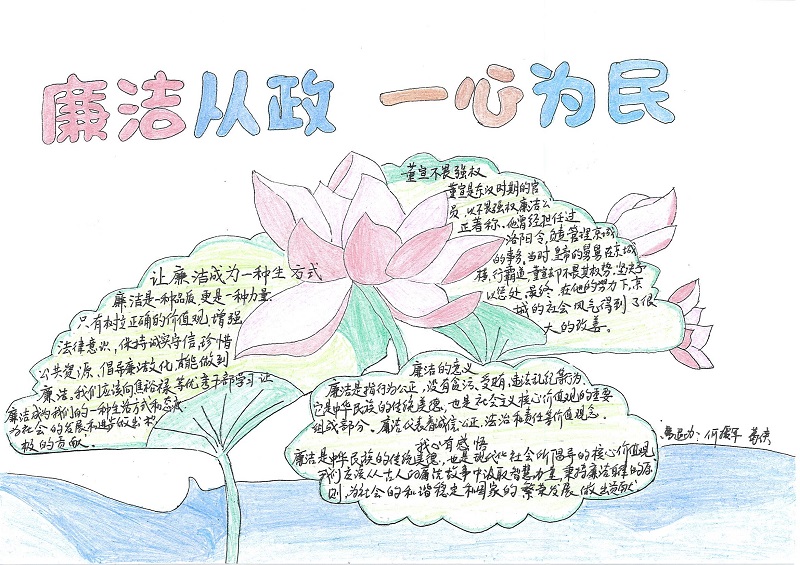 廉洁从政 一心为民
董宣不畏强权
董宣是东汉时期的官
员,以不畏强权廉洁公
正著称、他曾经担任过
洛阳令,负责管理京城
的事务。当时,皇帝的舅舅在京城
横行霸道,董宣却不畏其权势,坚决予
以惩处,最终,在他的努力下,京
城的社会风气得到了很
大的改善。
让廉洁成为一种生方式
廉洁是一种品质,更是一种力量.
只有树立正确的价值观,增强
法律意识,保持诚实守信,珍惜
公共资源,倡导廉洁文化,才能做到
廉洁,我们应该向焦裕禄等优秀干部学习,让
廉洁成为我们的一种生活方式和态度.
为社会的发展和进步做出积
极的贡献.
廉洁的意义
廉洁是指行为公正,没有贪污、受贿,违法乱纪等行为.
它是中华民族的传统美德,也是社会主义核心价值观的重要
组成部分。廉洁代表着诚信、公正、法治和责任等价值观念。
我心有感悟
廉洁是中华民族的传统美德,也是现代化社会所倡导的核心价值观
我们应该从古人的廉洁故事中汲取智慧力量,秉持廉洁自律的原
则,为社会的和谐稳定和国家的繁荣发展做出贡献.